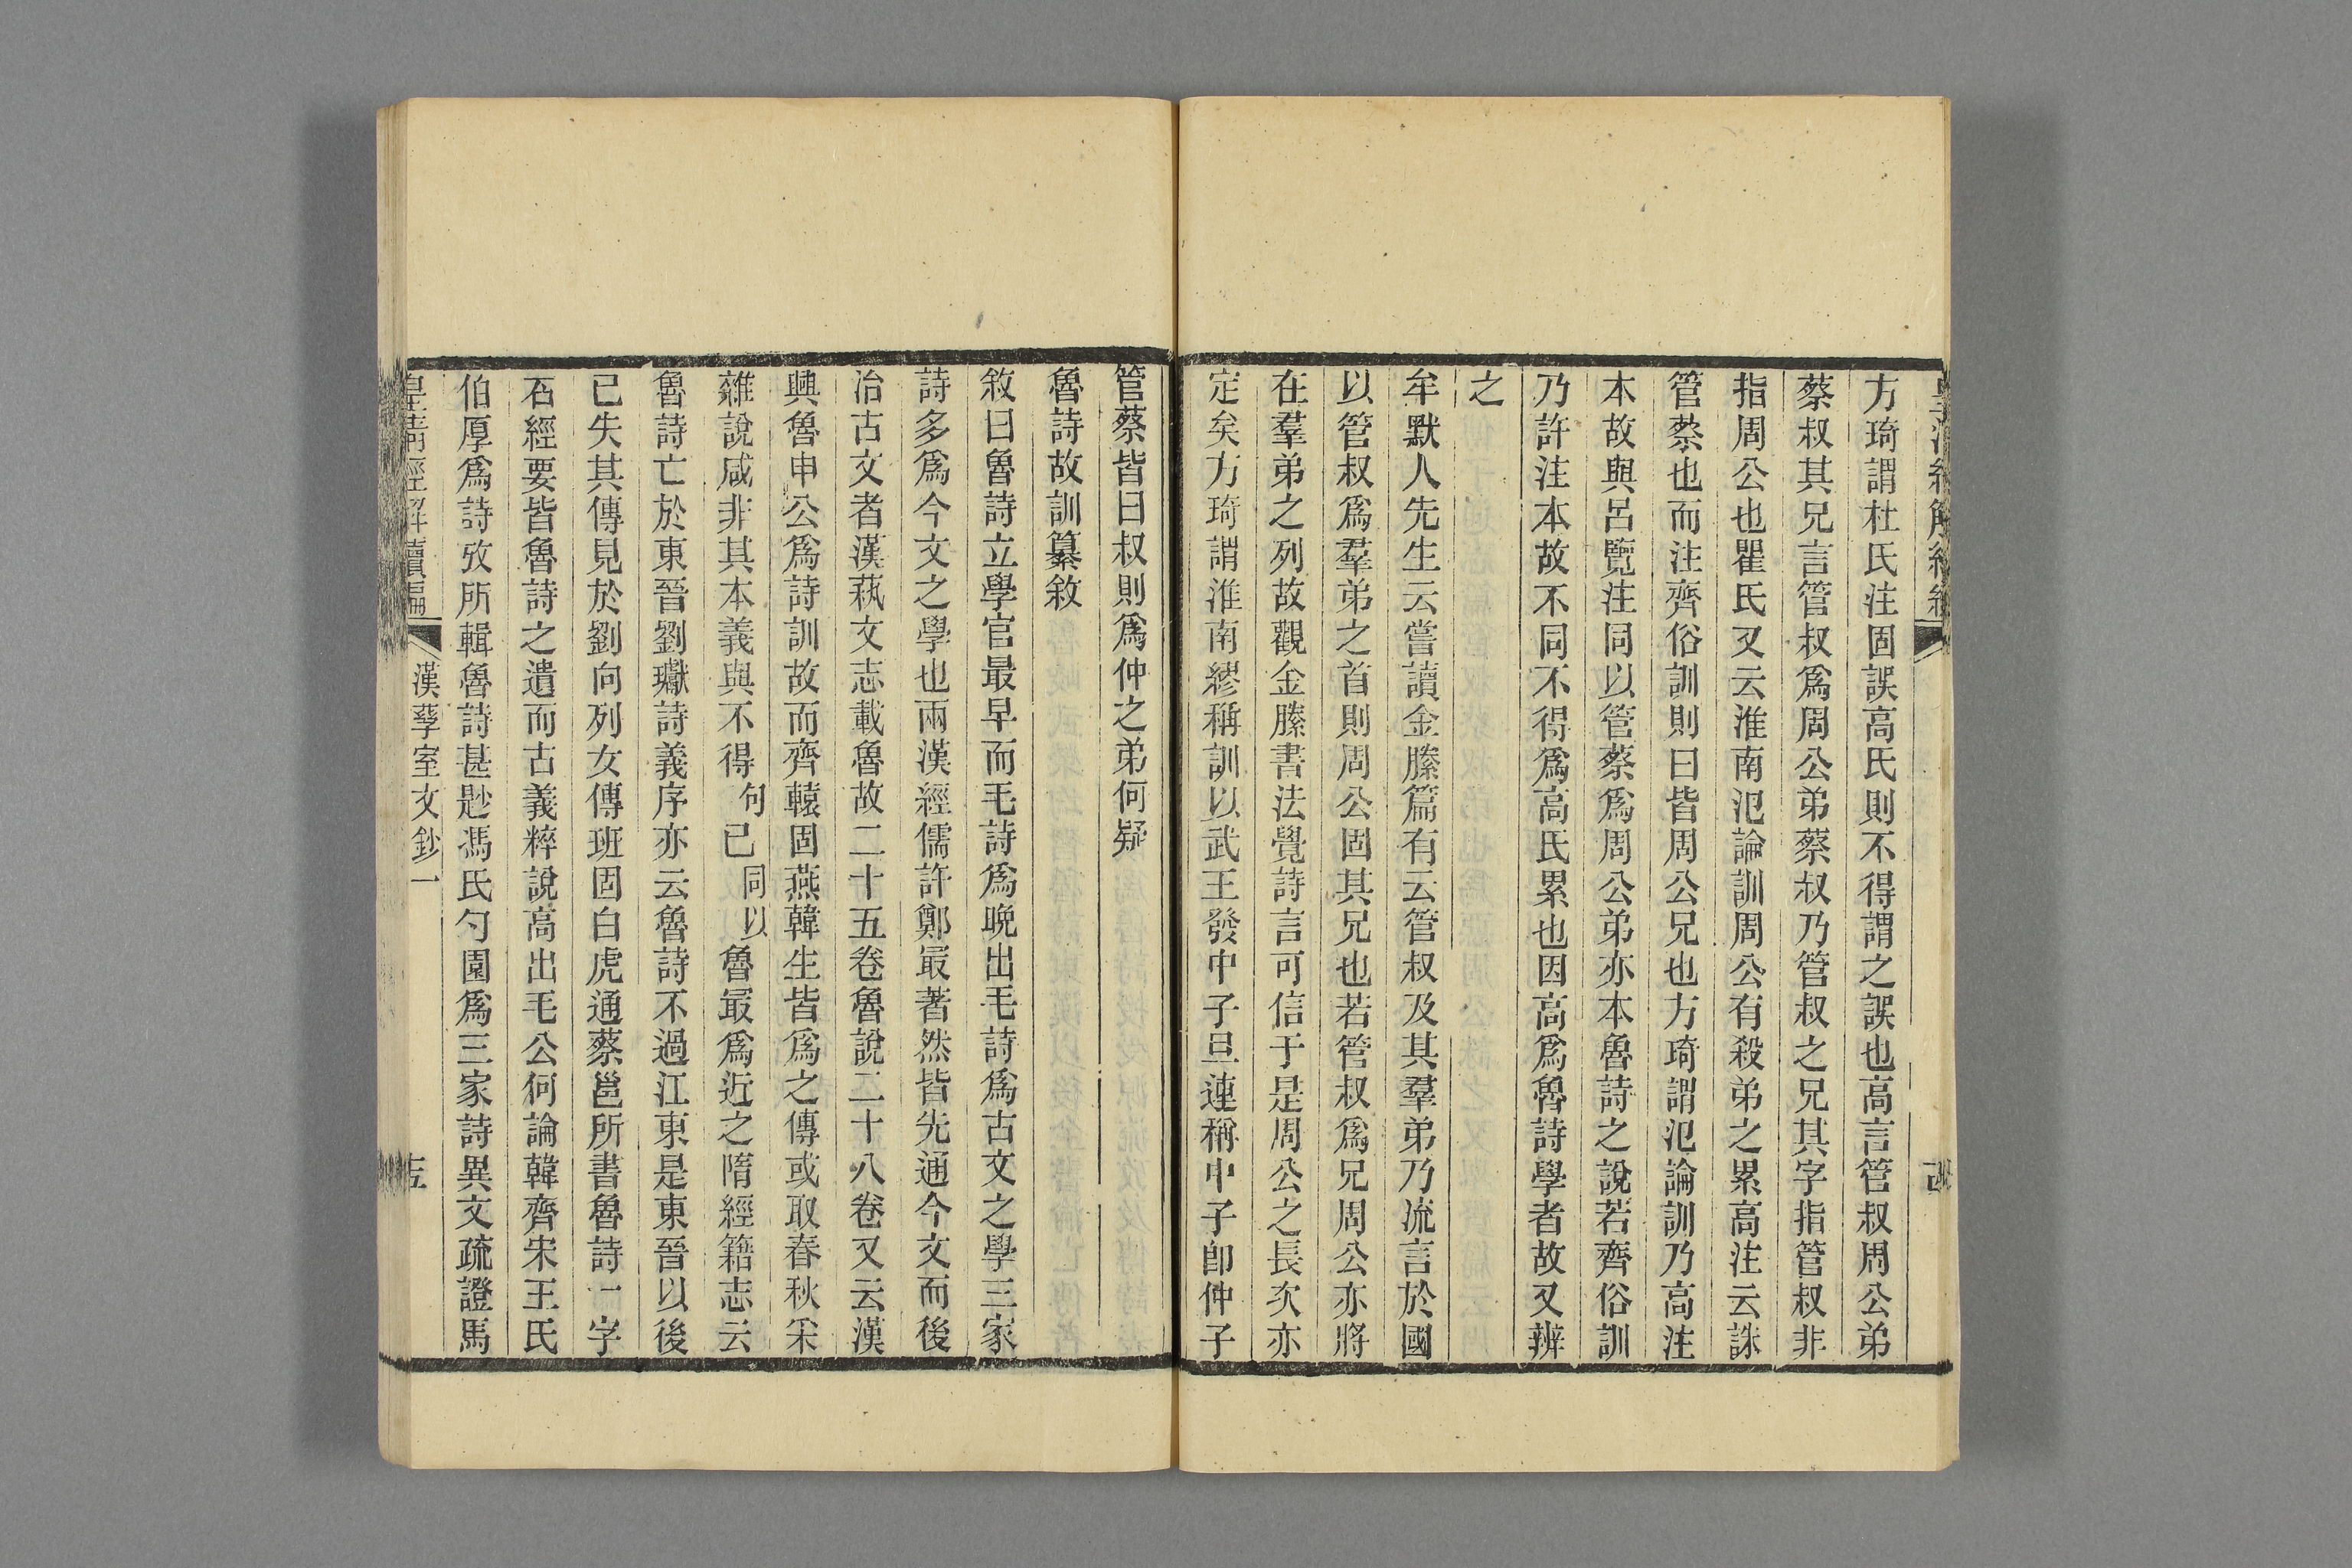 方琦謂杜氏注固誤高氏則不得謂之誤也高言管叔周公弟
蔡叔其兄言管叔爲周公弟蔡叔乃管叔之兄其字指管叔非
指周公也瞿氏又云淮南氾論訓周公有殺弟之累高注云誅
管蔡也而注齊俗訓則曰皆周公兄也方琦謂氾論訓乃高注
本故與呂覽注同以管蔡爲周公弟亦本魯詩之說若齊俗訓
乃許注本故不同不得爲高氏累也因高爲魯詩學者故又辨
之
牟默人先生云嘗讀金縢篇有云管叔及其羣弟乃流言於國
以管叔爲羣弟之首則周公固其兄也若管叔爲兄周公亦將
在羣弟之列故觀金縢書法覺詩言可信于是周公之長次亦
定矣方琦謂淮南繆稱訓以武王發中子旦連稱中子卽仲子
管蔡皆曰叔則爲仲之弟何疑
魯詩故訓纂敘
敘曰魯詩立學官最早而毛詩爲晚出毛詩爲古文之學三家
詩多爲今文之學也兩漢經儒許鄭最著然皆先通今文而後
治古文者漢蓺文志載魯故二十五卷魯說二十八卷又云漢
興魯申公爲詩訓故而齊轅固燕韓生皆爲之傳或取春秋采
雜說咸非其本義與不得句已同以魯最爲近之隋經籍志云
魯詩亡於東晉劉瓛詩義序亦云魯詩不過江東是東晉以後
已失其傳見於劉向列女傳班固白虎通蔡邕所書魯詩一字
石經要皆魯詩之遺而古義粹說高出毛公何論韓齊宋王氏
伯厚爲詩攷所輯魯詩甚尟馮氏勺園爲三家詩異文疏證馬
皇清經解續編
漢孳室文鈔一